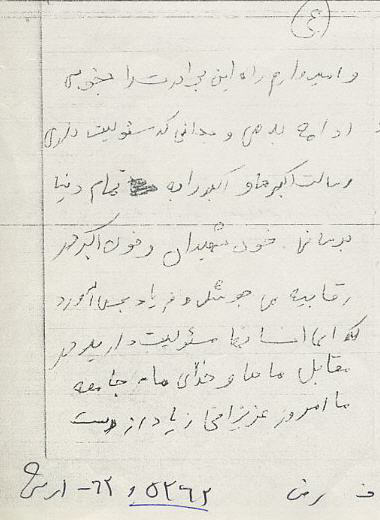 ۴
و امیدوارم راه این برادرت را بخوبی
ادامه بدهی و بدانی که مسئولیت داری
رسالت اکبرها و اکبررا به تمام دنیا
برسانی. خون شهیدان و خون اکبر در
می جوشد و فریاد بر می آورد
که ای انسانها مسئولیت دارید در
مقابل ماها و خدای ما، جامعه
ما امروز عزیزانی زیاد از دست